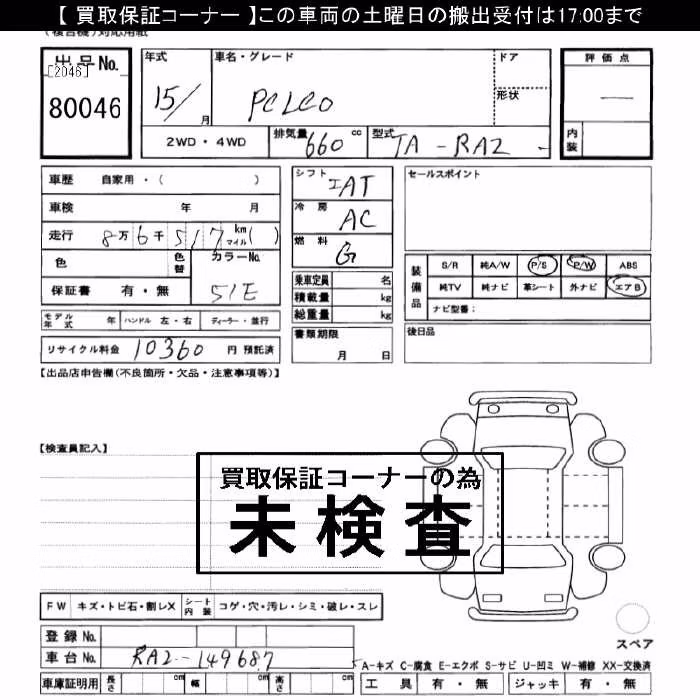 【 買取保証コーナー 】この車両の土曜日の搬出受付は17:00まで
出品No.
[2046]
80046
年式
15/
月
車名・グレード
PCLCO
ドア
形状
評価点
—
内装
2WD・4WD
排気量 660 cc
型式 TA-RA2
車歴 自家用・( )
車検 年 月
走行 8万6千517 km マイル( )
色
色替
カラーNo.
51E
保証書 有・無
シフト IAT
冷房 AC
燃料 G
乗車定員 名
積載量 kg
総重量 kg
セールスポイント
装備品
S/R 純A/W P/S P/W ABS
純TV 純ナビ 革シート 外ナビ エアB
ナビ型番:
モデル年式 年 ハンドル 左・右 ディーラー・並行
書類期限
月 日
後日品
リサイクル料金 10360 円 預託済
【出品店申告欄(不良箇所・欠品・注意事項等)】
【検査員記入】
買取保証コーナーの為
未検査
FW キズ・トビ石・割レX シート内装 コゲ・穴・汚レ・シミ・破レ・スレ
登録No.
車台No. RA2-149687
車庫証明用 長さ cm 幅 cm 高さ cm
スペア
A-キズ C-腐食 E-エクボ S-サビ U-凹ミ W-補修 XX-交換済
工具 有・無 ジャッキ 有・無